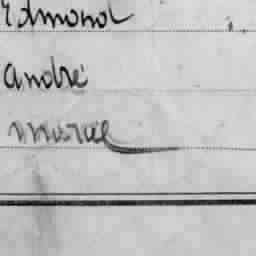 Edmond
André
Marcel